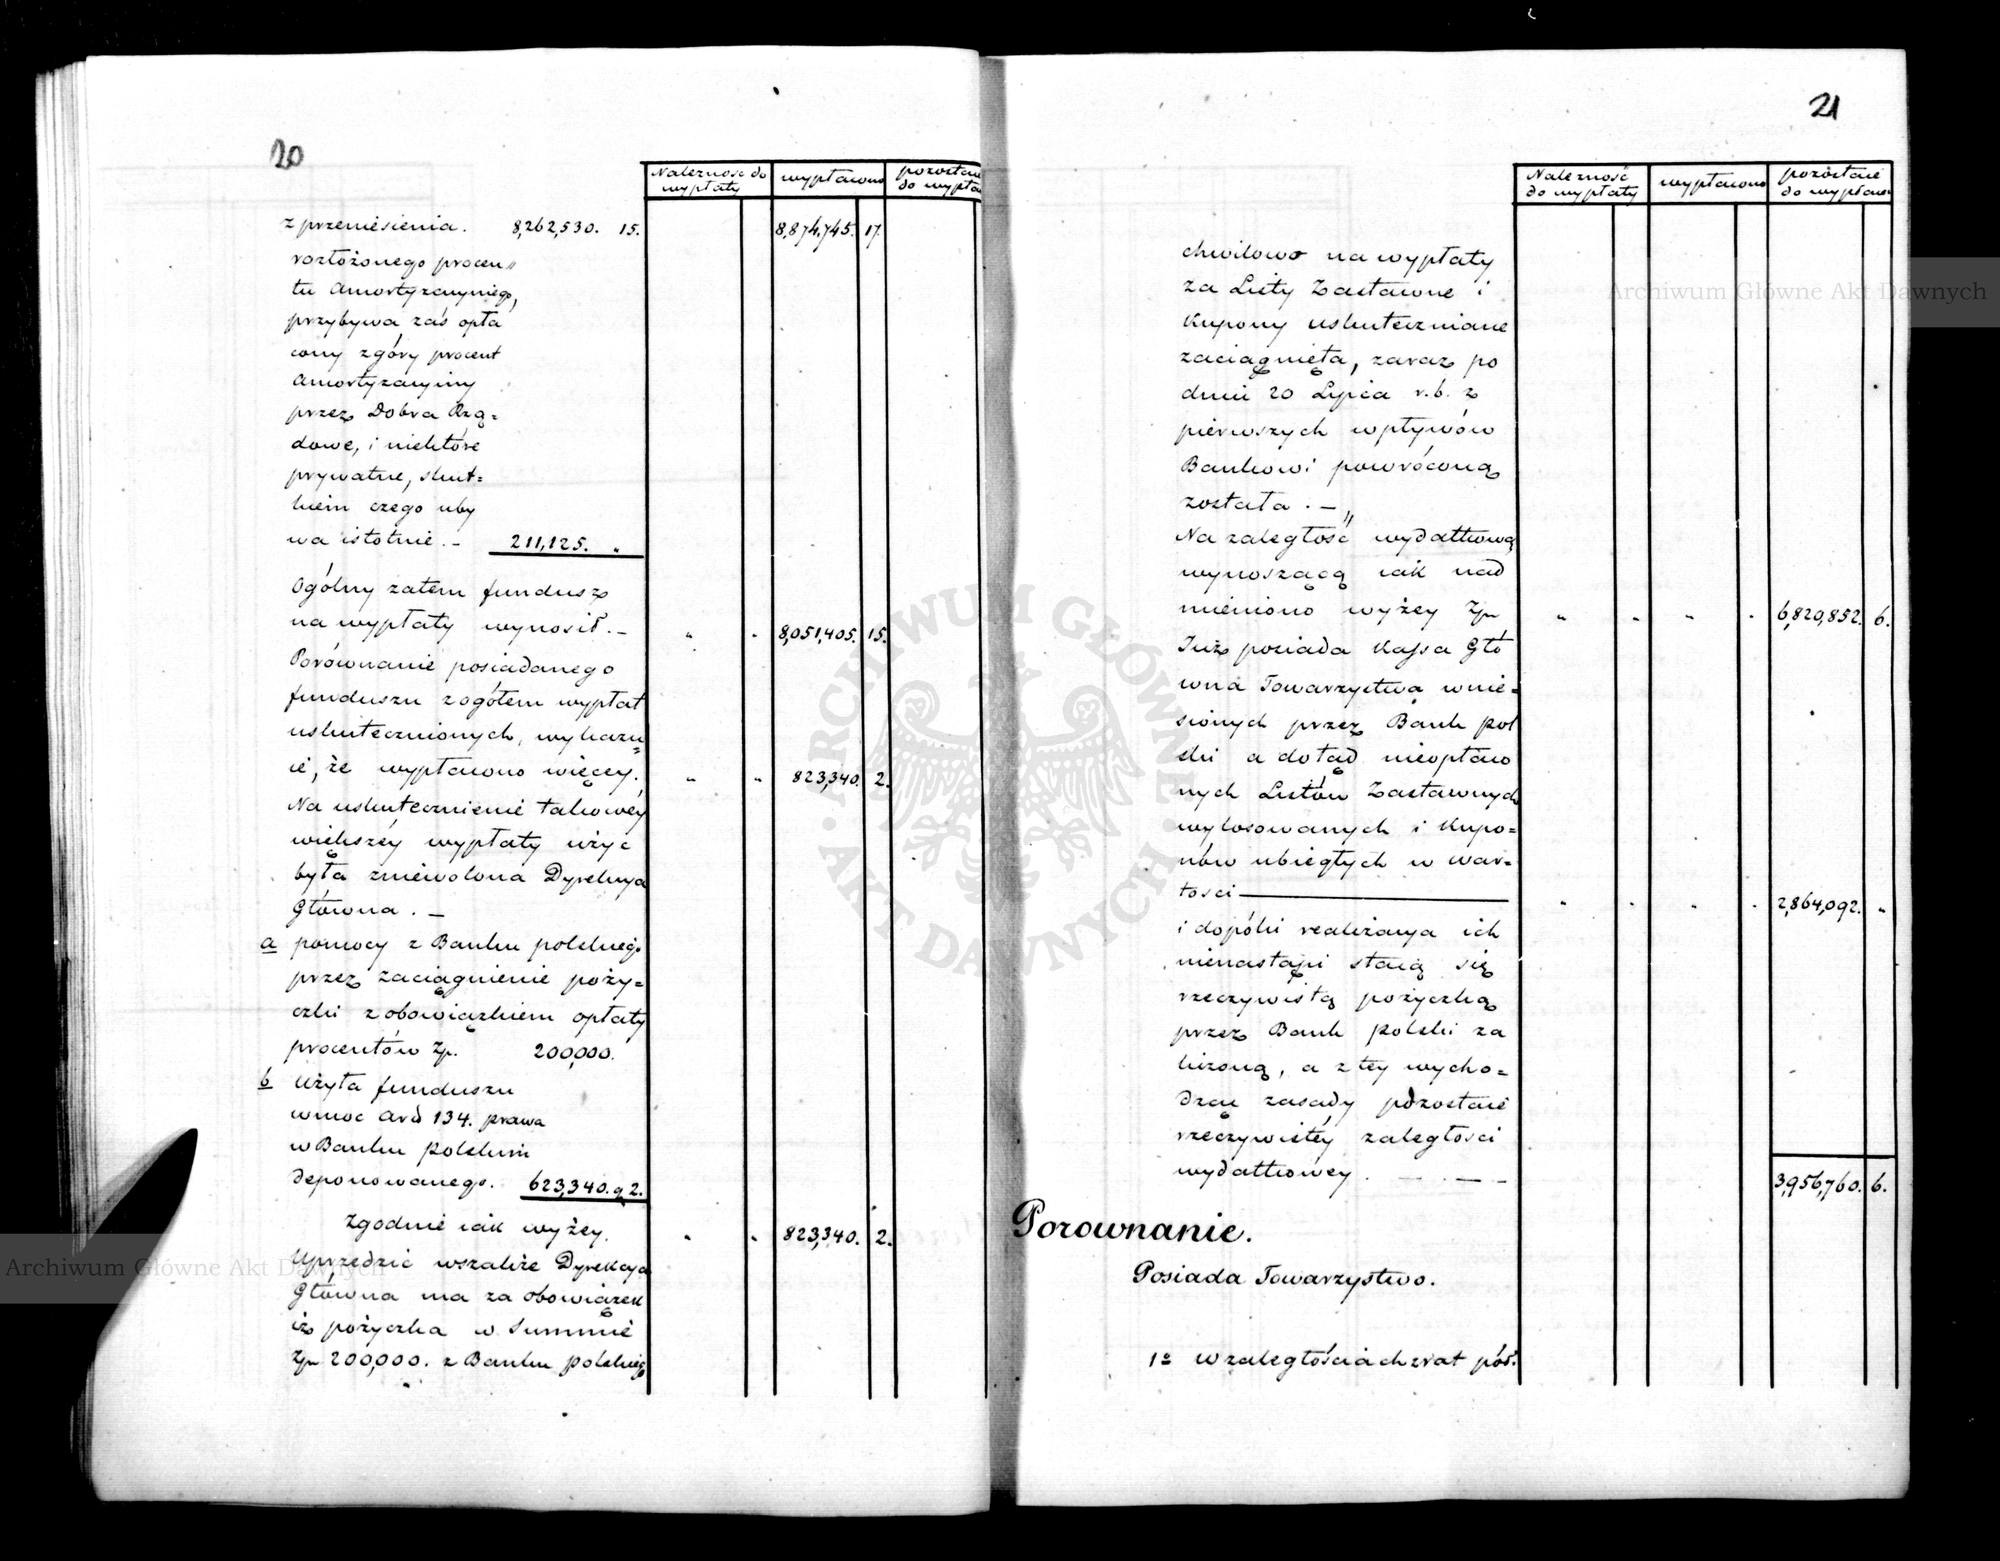 20
Należność do wypłaty
wypłacono
pozostaie do wypła
z przeniesienia. 8,262,530. 15. 8,874,745. 17.
rozłożonego procen„
tu Amortyzacyinego,
przybywa zaś opła
cony z góry procent
Amortyzacyiny
przez Dobra Rzą=
dowe, i niektóre
prywatne, skut=
kiem czego uby
wa istotnie. – 211,125. „
Ogólny zatem fundusz
na wypłaty wynosił. – „ „ 8,051,405. 15.
Porównanie posiadanego
funduszu z ogółem wypłat
uskutecznionych, wykazu=
ie, że wypłacono więcey. „ „ 823,340. 2.
Na uskutecznienie takowéy
większéy wypłaty użyć
była zniewolona Dyrekcya
Główna. –
a pomocy z Banku polskiego
przez zaciągnienie poży=
czki z obowiązkiem opłaty
procentów Zp. 200,000.
b Użyła funduszu
w moc Ard 134. prawa
w Banku polskim
deponowanego. 623,340. g 2.
Zgodnie iak wyżey. „ „ 823,340. 2.
Uprzedzić wszakże Dyrekcya
Główna ma za obowiązek
iż pożyczka w Summie
Zp 200,000. z Banku polskiego
21
Należność do wypłaty
wypłacono
pozostaie do wypłaco
chwilowo na wypłaty
za Listy Zastawne i
Kupony uskuteczniane
zaciągnięta, zaraz po
dniu 20 Lipca r. b. z
pierwszych wpływów
Bankowi powróconą
została. – „
Na zaległość wydatkową
wynoszącą iak nad
mieniono wyżey Zp „ „ „ „ 6,820,852. 6.
Już posiada Kassa Głó
wna Towarzystwa wnie=
sionych przez Bank pol
ski a dotąd nieopłaco
nych Listów Zastawnych
wylosowanych i Kupo=
nów ubiegłych w war=
tości „ „ „ „ 2,864,092. „
i dopóki realizacya ich
nienastąpi staią się
rzeczywistą pożyczką
przez Bank polski za
liczoną, a z tey wycho=
dząc zasady pozostaie
rzeczywistéy zaległości
wydatkowey. – – – 3,956,760. 6.
Porownanie.
Posiada Towarzystwo.
1o w zaległościach z rat pół.
Archiwum Główne Akt Dawnych
Archiwum Główne Akt Dawnych
ARCHIWUM GŁÓWNE AKT DAWNYCH